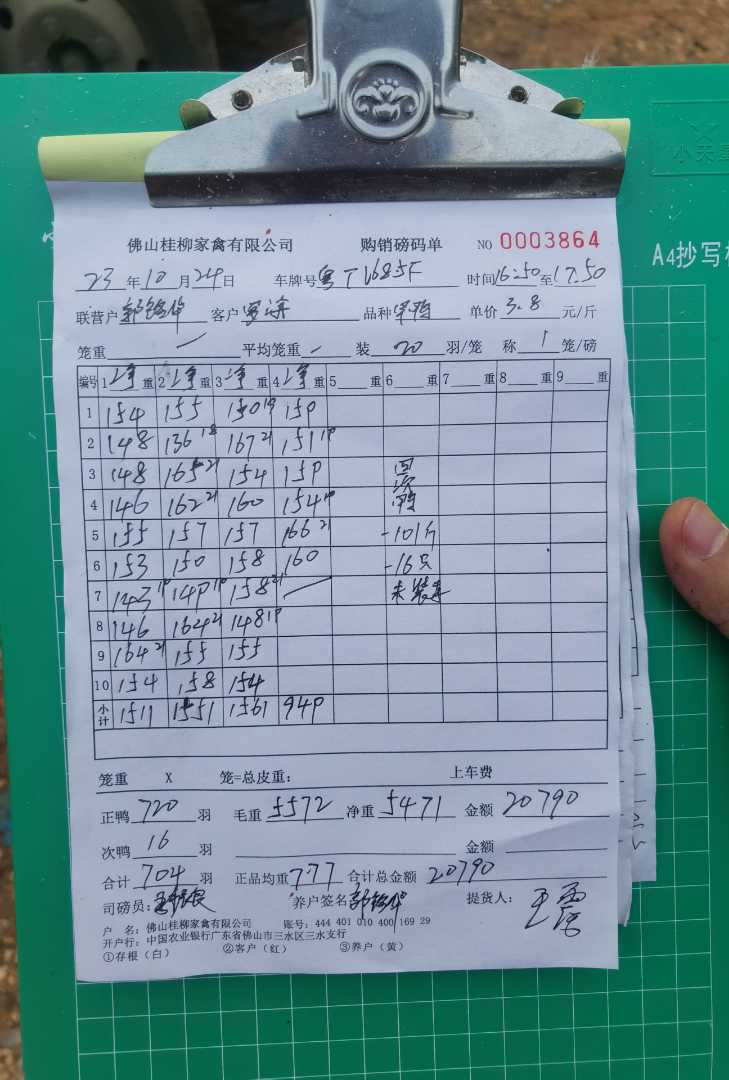 小天
A4抄写
佛山桂柳家禽有限公司 购销磅码单 NO 0003864
23年10月24日 车牌号粤T1685F 时间16:50至17.50
联营户 客户 品种 单价3.8元/斤
笼重 一 平均笼重 一 装 20 羽/笼 称 1 笼/磅
编号 1上净重 2上净重 3上净重 4上净重 5重 6重 7重 8重 9重
1 154 155 150 19 159
2 148 136 18 167 21 151 19
3 148 165 21 154 159 回
4 146 162 21 160 154 19 次鸭
5 155 157 157 166 21 -101斤
6 153 150 158 160 -16只
7 143 19 149 19 158 21 未装车
8 146 164 21 148 19
9 164 21 155 155
10 154 158 154
小计 1511 1551 1561 949
笼重 X 笼=总皮重: 上车费
正鸭 720 羽 毛重 5572 净重 5471 金额 20790
次鸭 16 羽 金额
合计 704 羽 正品均重 7.77 合计总金额 20790
司磅员: 养户签名 提货人: 王
户 名: 佛山桂柳家禽有限公司 账号: 444 401 010 400 169 29
开户行: 中国农业银行广东省佛山市三水区三水支行
①存根(白) ②客户(红) ③养户(黄)